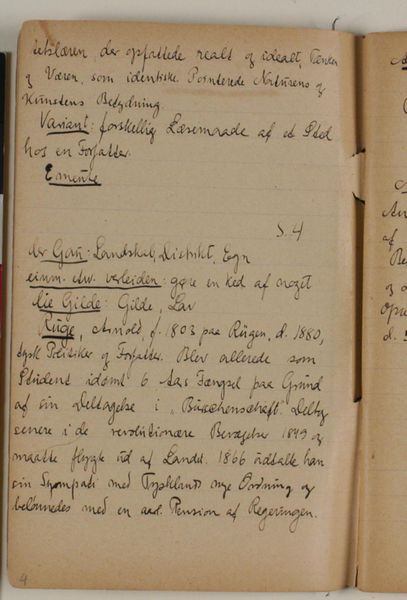 tetslæren, der opfattede realt og idealt, Tænken
og Væren, som identiske. Pointerede Naturens og
Kunstens Betydning.
Variant: forskellig Læsemaade af et Sted
hos en Forfatter.
Emeute
S. 4
der Gau: Landskab, Distrikt, Egn
einem etw. verleiden: gøre en ked af noget
die Gilde: Gilde, Lav
Ruge, Arnold, f. 1803 paa Rügen, d. 1880,
tysk Politiker og Forfatter. Blev allerede som
Student idømt 6 Aars Fængsel paa Grund
af sin Deltagelse i "Burschenschaft". Deltog
senere i de revolutionære Bevægelser 1849 og
maatte flygte ud af Landet. 1866 udtalte han
sin Sympati med Tysklands nye Ordning og
belønnedes med en aarl. Pension af Regeringen.
4